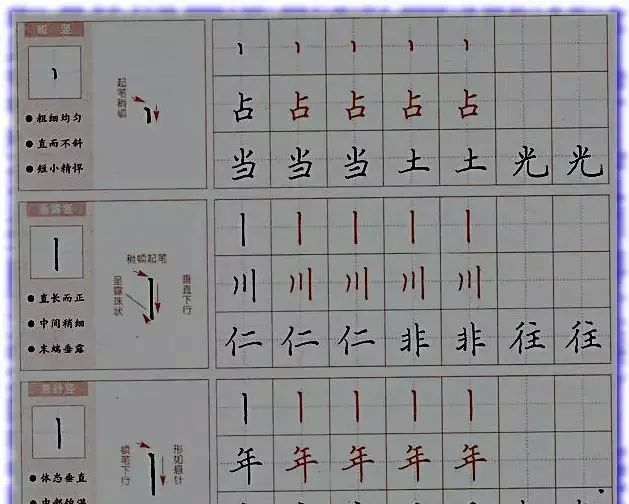 短 竖
起笔稍顿
● 粗细均匀
● 直而不斜
● 短小精悍
占 占 占 占 占
当 当 当 土 土 光 光
垂露竖
稍顿起笔
呈露珠状
垂直下行
● 直长而正
● 中间稍细
● 末端垂露
川 川 川 川 川
仁 仁 仁 非 非 往 往
悬针竖
顿笔下行
形如悬针
● 体态垂直
年 年 年 年 年